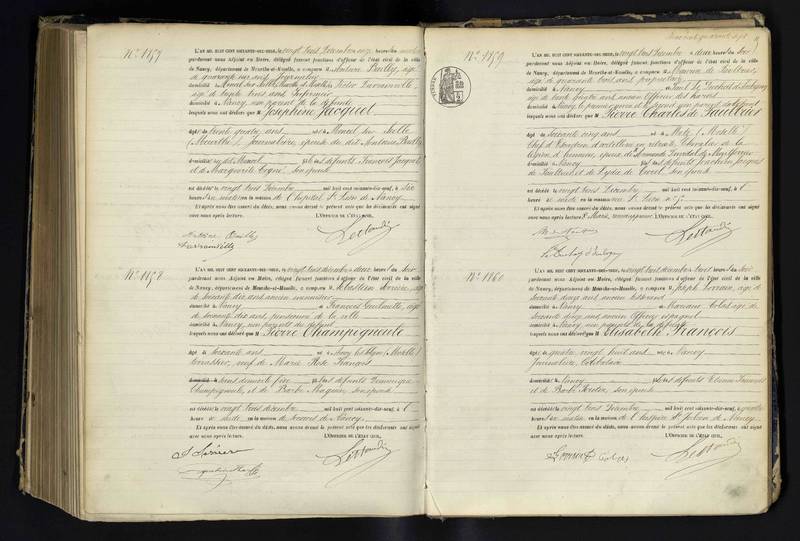 L'AN MIL HUIT CENT SOIXANTE-DIX-NEUF, le vingt trois Décembre onze heures du matin
pardevant nous Adjoint au Maire, délégué faisant fonctions d'officier de l'état civil de la ville
de Nancy, département de Meurthe-et-Moselle, a comparu M. Antoine Bailly, âgé
de quarante six ans, journalier
trente trois ans, infirmier
domicilié à Nancy, non parent de la défunte
lesquels nous ont déclaré que M Joséphine Jacquel
âgée trente quatre ans née à Mesnil sur Belle
(Meurthe) journalière, épouse du dit Antoine Bailly
domiciliée au dit Mesnil fille des défunts François Jacquel
et de Marguerite son épouse
est décédée le vingt trois Décembre mil huit cent soixante-dix-neuf, à six
heures du matin en la maison de l'hôpital St Léon de Nancy
Et après nous être assuré du décès, nous avons dressé le présent acte que les déclarants ont signé
avec nous après lecture. L'OFFICIER DE L'ÉTAT CIVIL,
N° 1858
L'AN MIL HUIT CENT SOIXANTE-DIX-NEUF, le vingt trois décembre à deux heures du soir
pardevant nous Adjoint au Maire, délégué faisant fonctions d'officier de l'état civil de la ville
de Nancy, département de Meurthe-et-Moselle, a comparu M. Sébastien
de soixante dix ans, ancien menuisier
domicilié à Nancy et François Guilmette, âgé
de soixante dix ans pensionné de la ville
domicilié à Nancy, non parents du défunt
lesquels nous ont déclaré que M Pierre Champigneule
âgé de soixante ans né à (Moselle)
terrassier, veuf de Marie Rose François
domicilié sans demeure fixe fils des défunts Dominique
Champigneule, et de Barbe Maguin, son épouse
est décédé le vingt trois décembre mil huit cent soixante-dix-neuf, à
heure du en la maison de secours de Nancy
Et après nous être assuré du décès, nous avons dressé le présent acte que les déclarants ont signé
avec nous après lecture. L'OFFICIER DE L'ÉTAT CIVIL,
N° 1859
L'AN MIL HUIT CENT SOIXANTE-DIX-NEUF, le vingt trois Décembre à deux heures du soir
pardevant nous Adjoint au Maire, délégué faisant fonctions d'officier de l'état civil de la ville
de Nancy, département de Meurthe-et-Moselle, a comparu M. Maurice de Faultrier
âgé de quarante trois ans, propriétaire
domicilié à Nancy et Paul
âgé de trente quatre ans ancien officier des haras
domicilié à Nancy, le premier neveu et le second non parent du défunt
lesquels nous ont déclaré que M Pierre Charles de Faultrier
âgé de soixante cinq ans né à Metz (Moselle)
Chef d'Escadron d'artillerie en retraite, Chevalier de la
Légion d'honneur, époux de
domicilié à Nancy fils des défunts Joachim Jacques
de Faultrier et de Lydie de son épouse
est décédé le vingt trois Décembre mil huit cent soixante-dix-neuf, à
heure du matin en la maison rue St Léon n° 7
Et après nous être assuré du décès, nous avons dressé le présent acte que les déclarants ont signé
avec nous après lecture. L'OFFICIER DE L'ÉTAT CIVIL,
N° 1860
L'AN MIL HUIT CENT SOIXANTE-DIX-NEUF, le vingt trois décembre trois heures du soir
pardevant nous Adjoint au Maire, délégué faisant fonctions d'officier de l'état civil de la ville
de Nancy, département de Meurthe-et-Moselle, a comparu M. Joseph Lorrain, âgé de
soixante douze ans ancien
domicilié à Nancy et Mariano Colas âgé de
soixante dix ans ancien Officier espagnol
domicilié à Nancy, non parents de la défunte
lesquels nous ont déclaré que M Elisabeth François
âgée de quatre vingt huit ans née à Nancy
Journalière, Célibataire
domiciliée à Nancy fille des défunts Etienne François
et de Barbe son épouse
est décédée le vingt trois Décembre mil huit cent soixante-dix-neuf, à quatre
heures du matin en la maison de l'hospice St Julien de Nancy
Et après nous être assuré du décès, nous avons dressé le présent acte que les déclarants ont signé
avec nous après lecture. L'OFFICIER DE L'ÉTAT CIVIL,